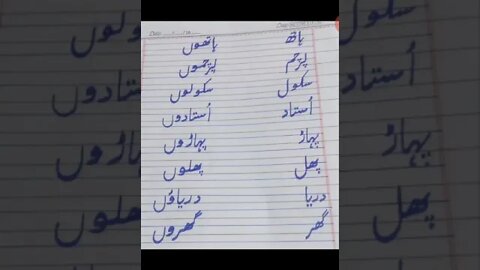 ہاتھ ہاتھوں
پرچم پرچموں
سکول سکولوں
اُستاد اُستادوں
پہاڑ پہاڑوں
پھل پھلوں
دریا دریاؤں
گھر گھروں